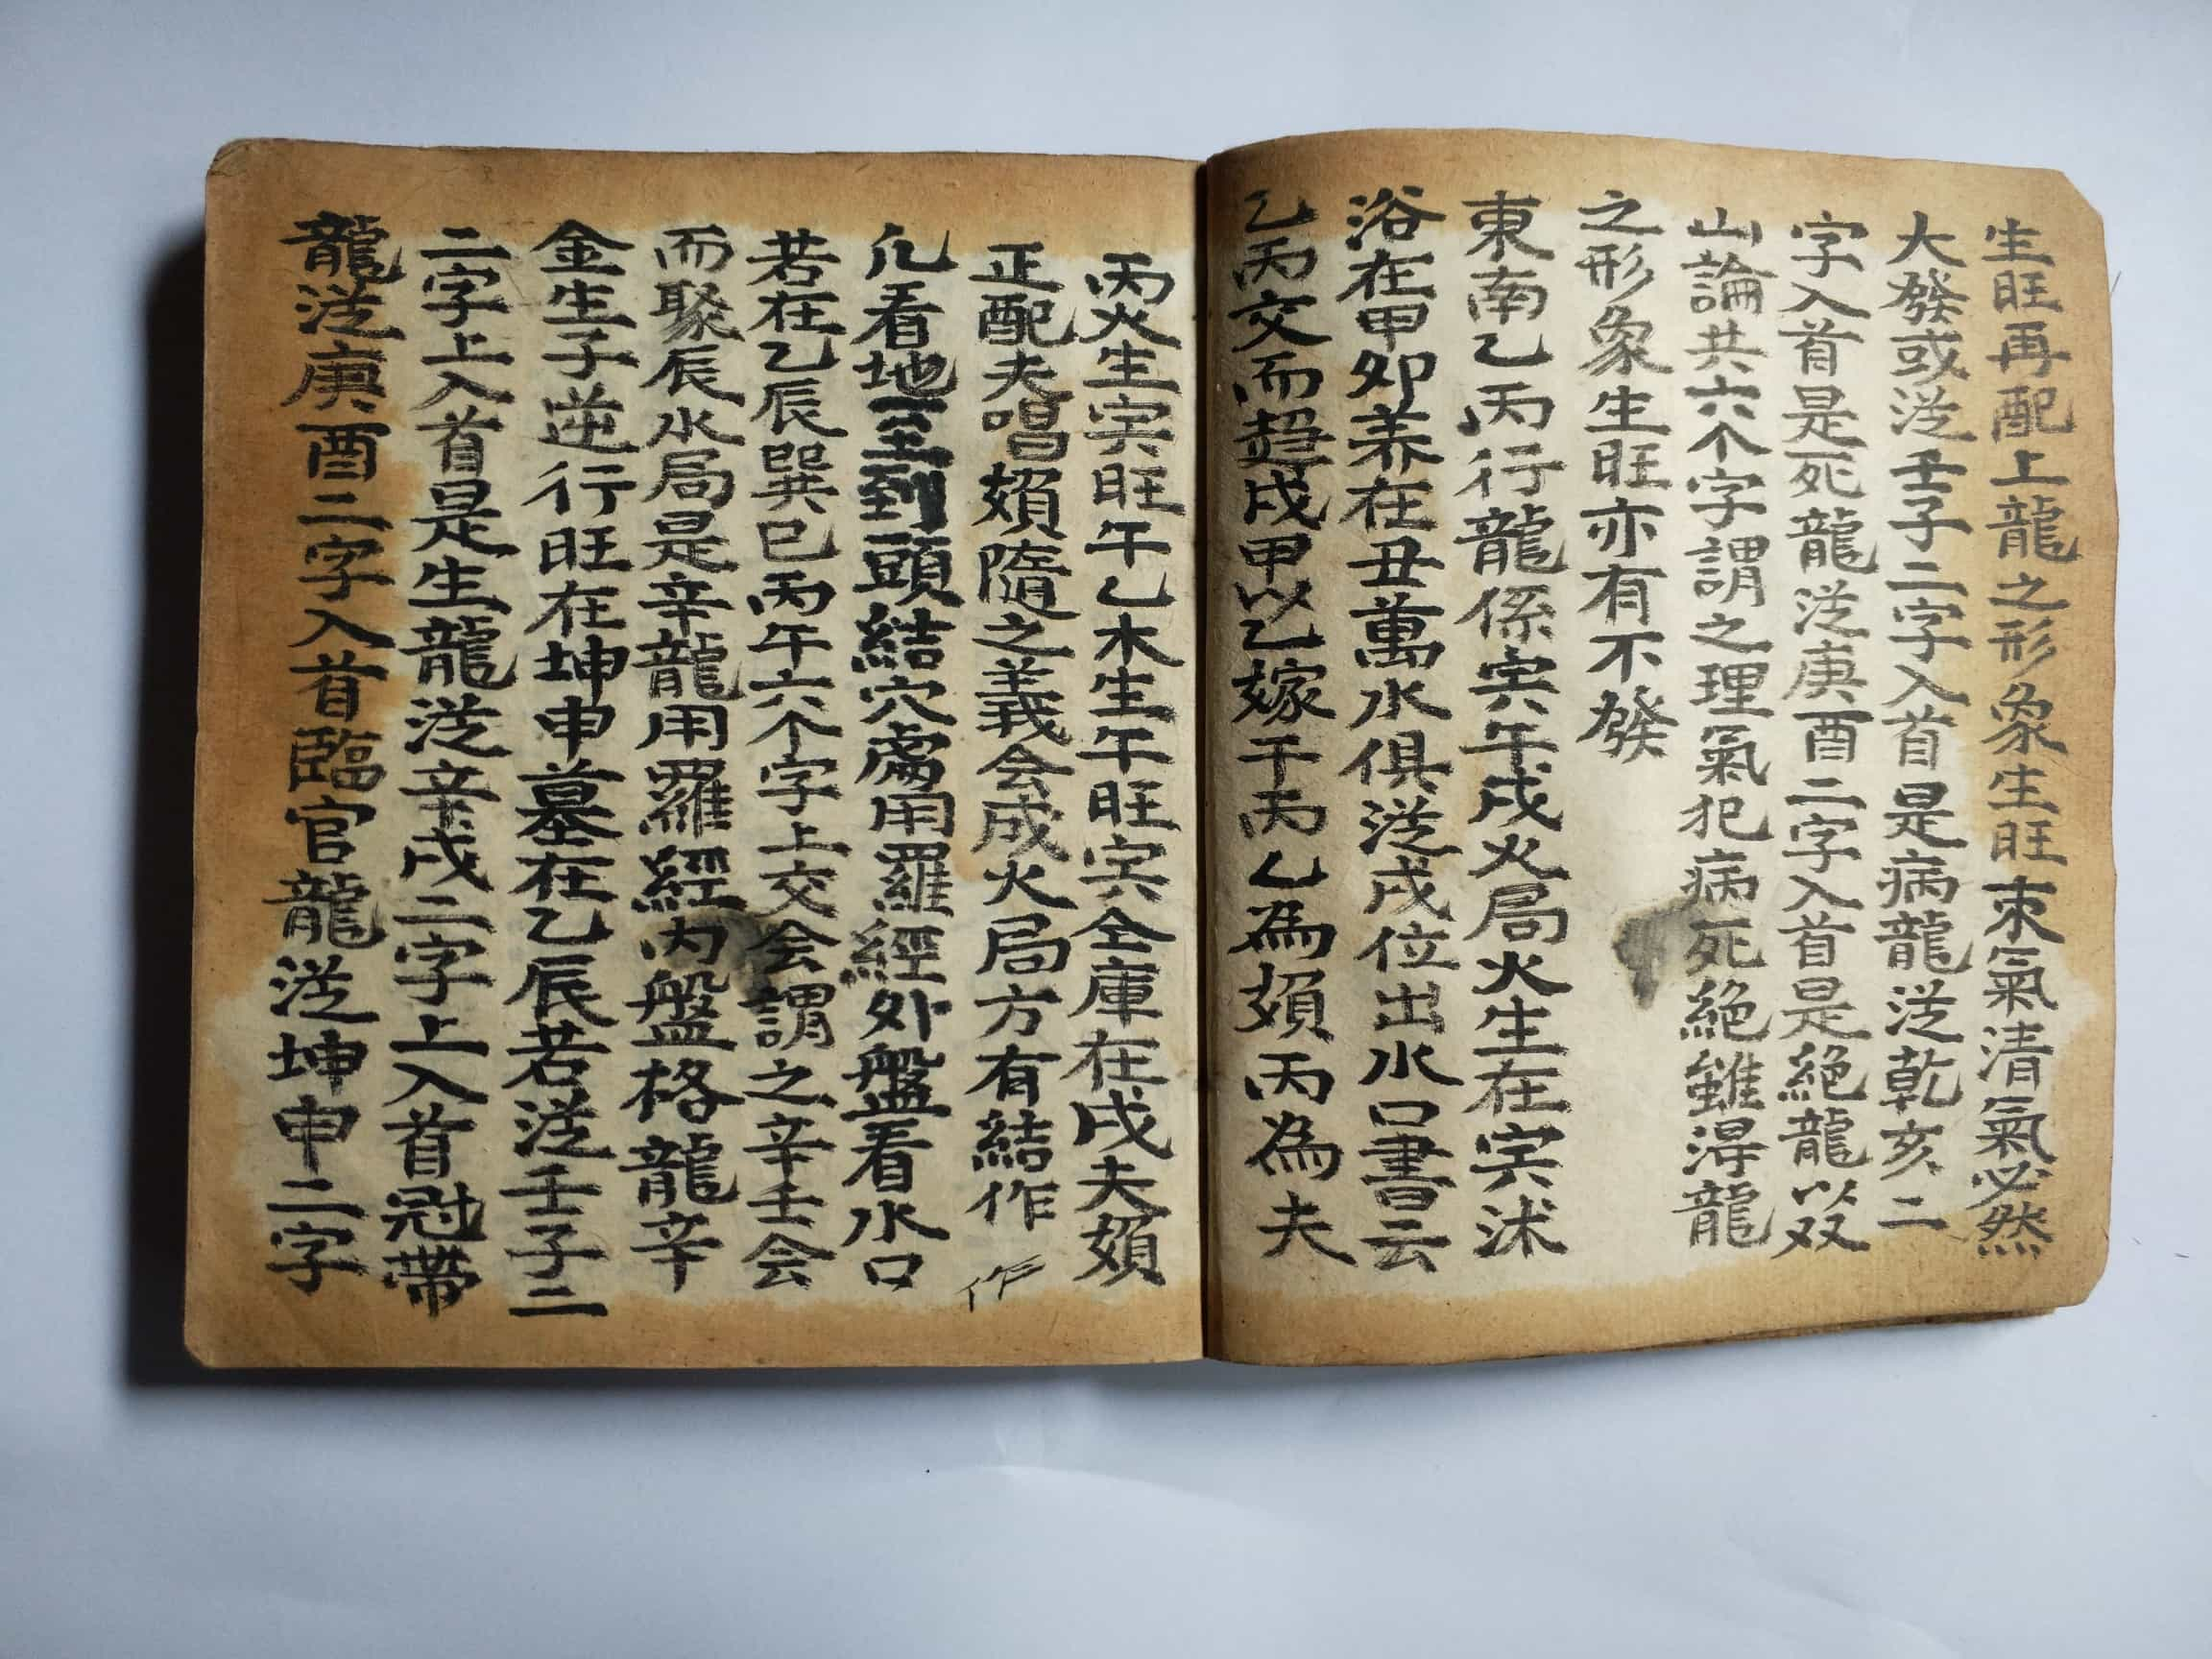 生旺再配上龍之形象生旺束氣清氣必然
大發或从壬子二字入首是病龍从乾亥二
字入首是死龍从庚酉二字入首是絕龍以双
山論共六个字謂之理氣犯病死絕雖淂龍
之形象生旺亦有不發
東南乙丙行龍係寅午戌火局火生在寅沭
浴在甲卯养在丑萬水俱从戌位出水口書云
乙丙交而趨戌甲以乙嫁于丙乙為㛫丙為夫
丙火生寅旺午乙木生午旺寅仝庫在戌夫㛫
正配夫唱㛫隨之義会成火局方有結作
作
凢看地至到頭結穴處用羅經外盤看水口
若在乙辰巽巳丙午六个字上交会謂之辛壬会
而聚辰水局是辛龍用羅經内盤格龍辛
金生子逆行旺在坤申墓在乙辰若从壬子二
二字上入首是生龍从辛戌二字上入首冠帶
龍从庚酉二字入首臨官龍从坤申二字